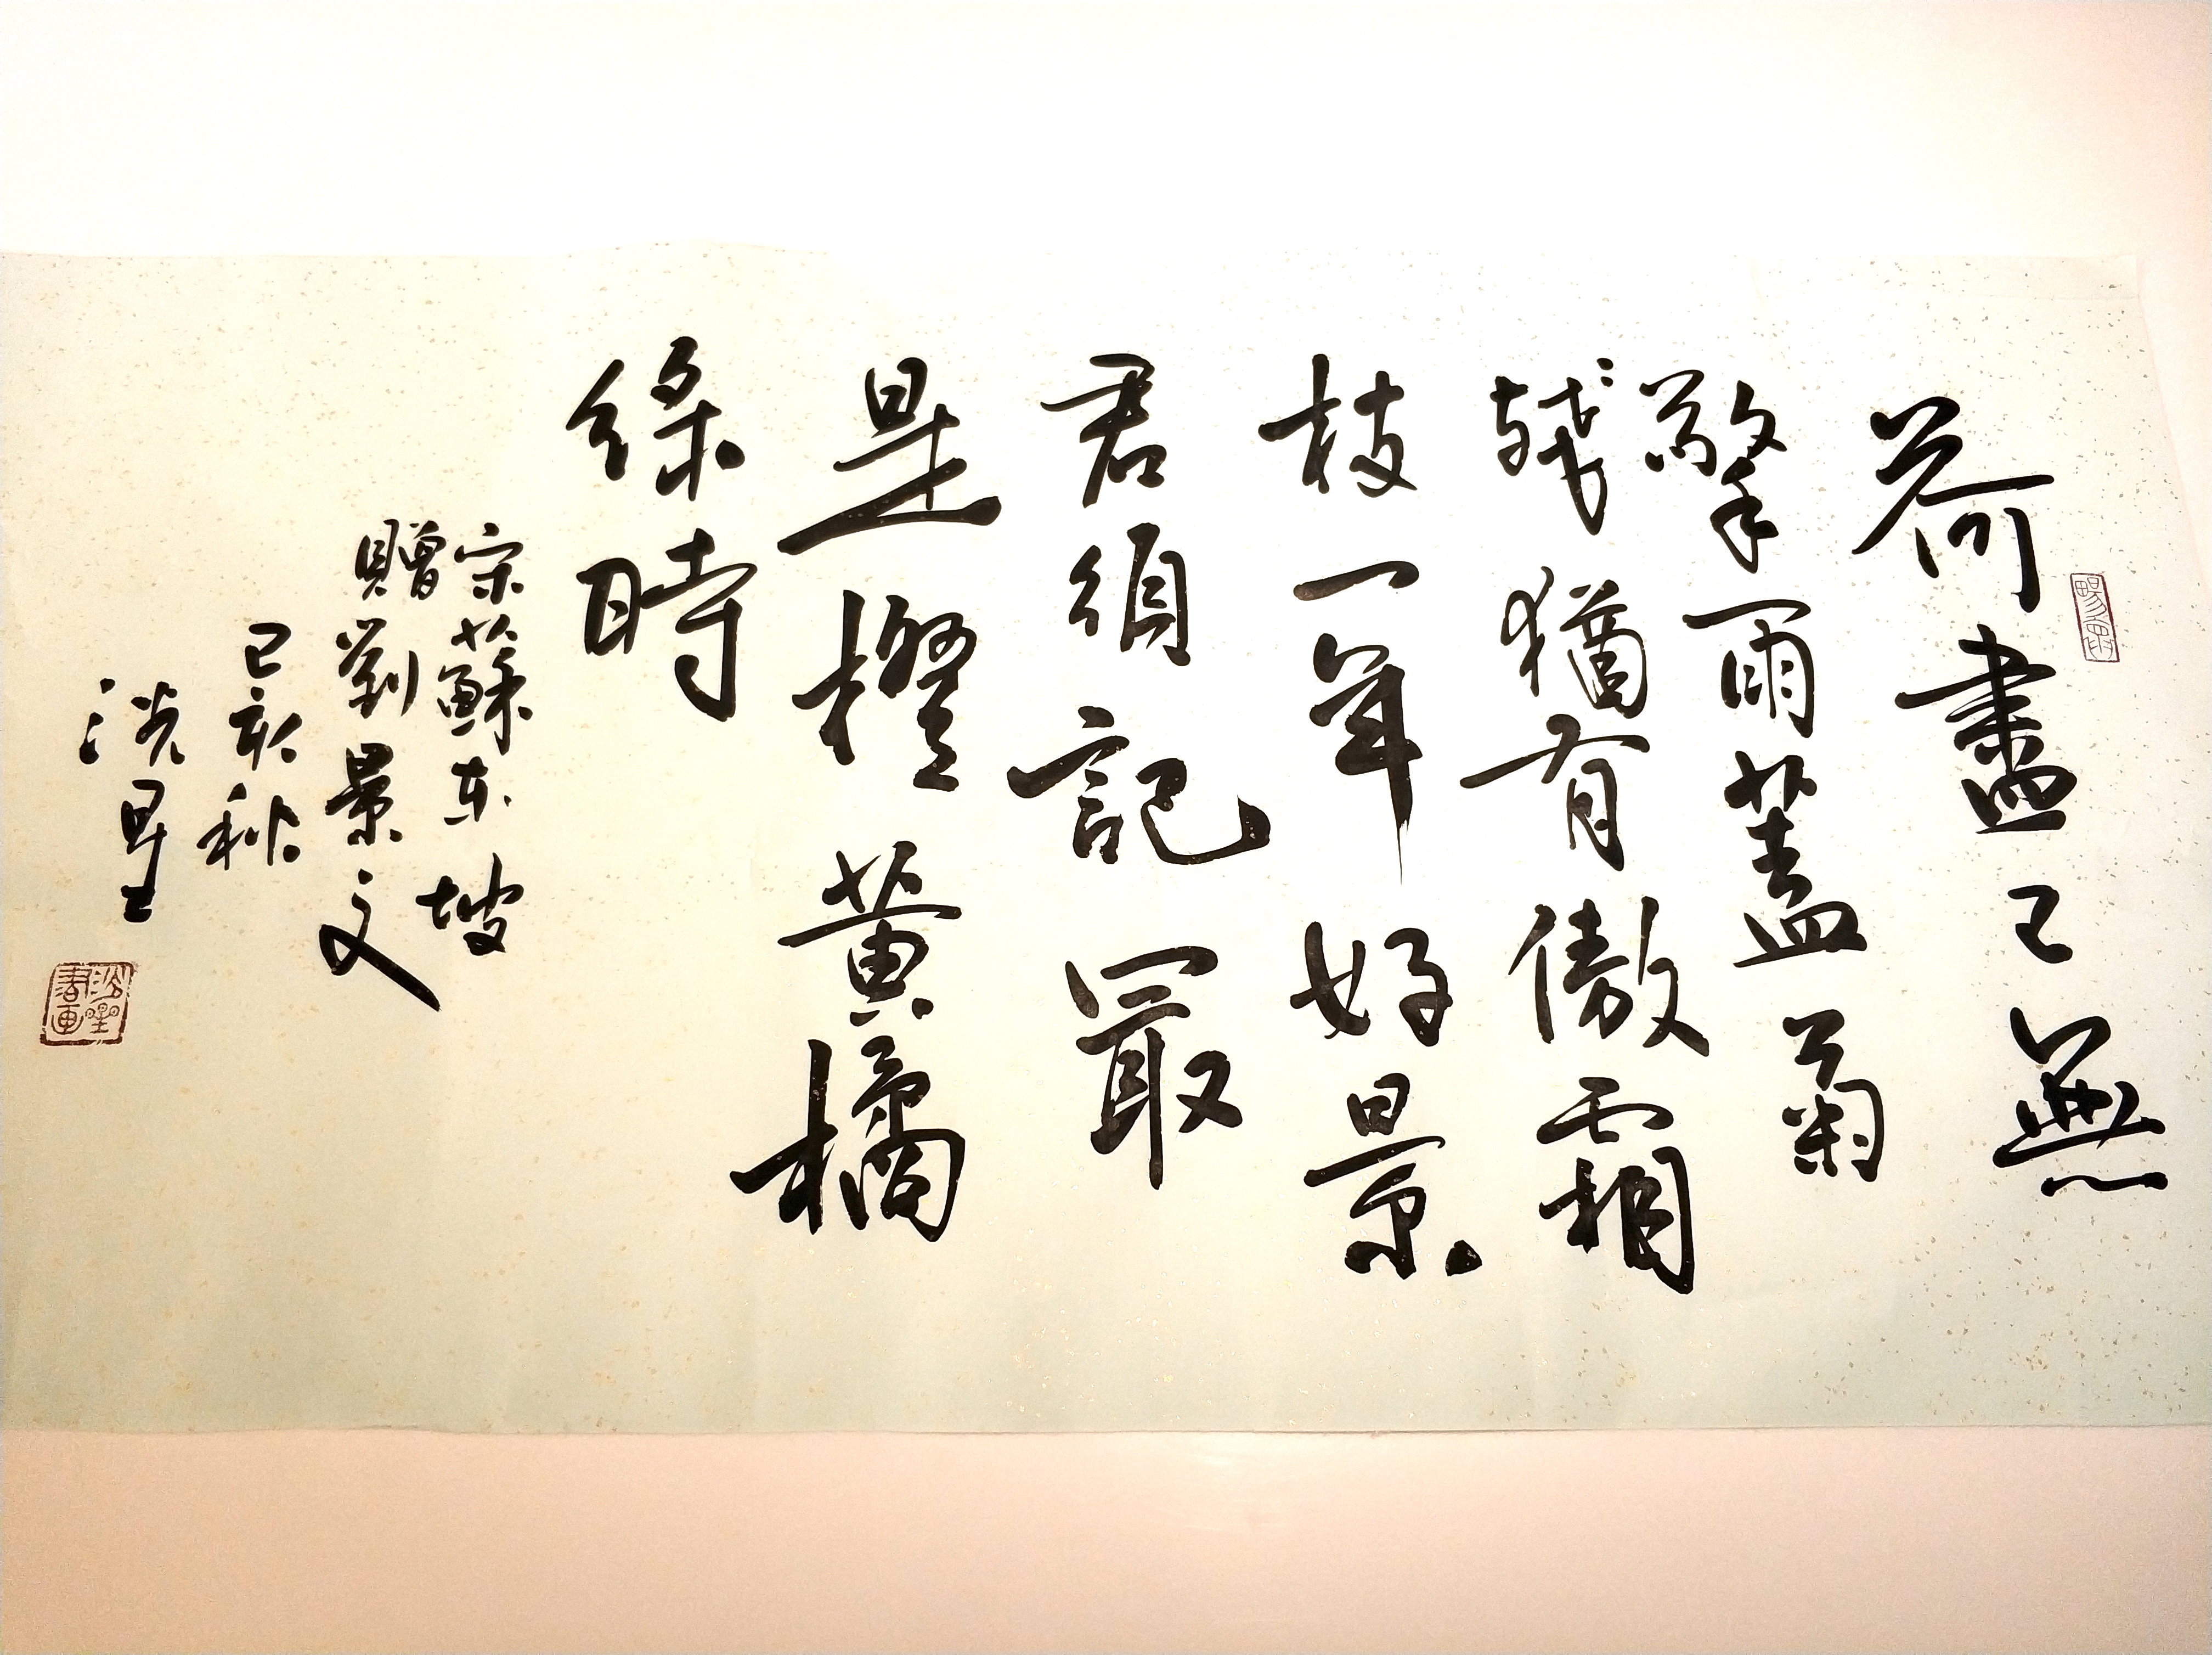 荷盡已無
擎雨蓋菊
殘猶有傲霜
枝一年好景
君須記冣
是橙黃橘
綠時
宋蘇東坡
贈劉景文
己亥秋